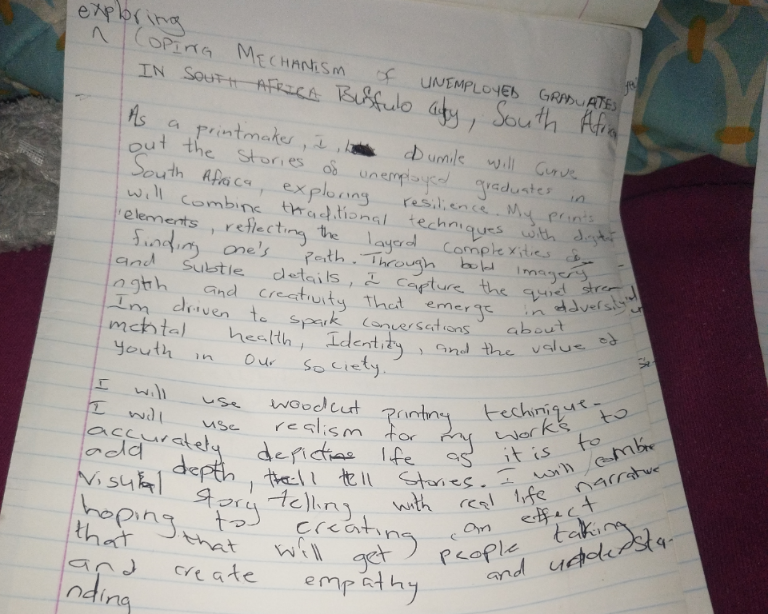 exploring
^ COPING MECHANISM of UNEMPLOYED GRADUATES
IN SOUTH AFRICA Buffulo City, South Africa
As a printmaker, I, Dumile will Curve
out the stories of unemployed graduates in
South Africa, exploring resilience. My prints
will combine traditional techniques with digital
elements, reflecting the layerd complexities of
finding one's path. Through bold imagery
and subtle details, I capture the quiet stren
ngth and creativity that emerge in adversity
Im driven to spark conversations about
mental health, Identity, and the value of
youth in our society.
I will use woodcut printing techinique-
I will use realism for my works to
accurately depict life as it is to
add depth, tell stories. I will combine
visual story telling with real life narrative
hoping to creating an effect
that that will get people taking
and create empathy and understa-
nding